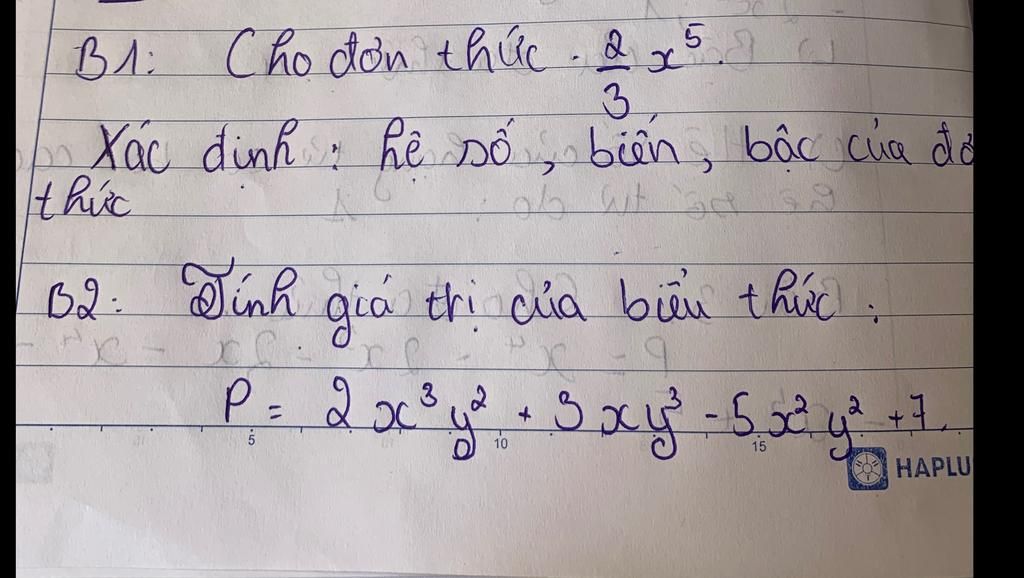 B1: Cho đơn thức - 2/3 x⁵.
Xác định: hệ số, biến, bậc của đơ
thức
B2: Tính giá trị của biểu thức:
P = 2x³y² + 3xy³ - 5x²y² + 7.
5 10 15
HAPLU